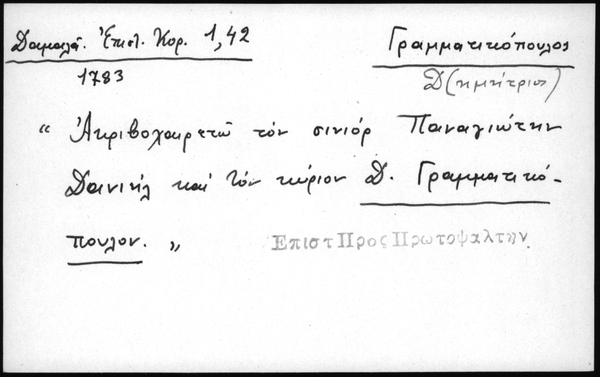 Δαμαλᾶ. Ἐπιστ. Κορ. 1,42
1783
Γραμματικόπουλος
Δ(ημήτριος)
“ Ἀκριβοχαιρετῶ τὸν σινιὸρ Παναγιώτην
Δανιὴλ καὶ τὸν κύριον Δ. Γραμματικό-
πουλον. „
Επιστ Προς Πρωτοψαλτην